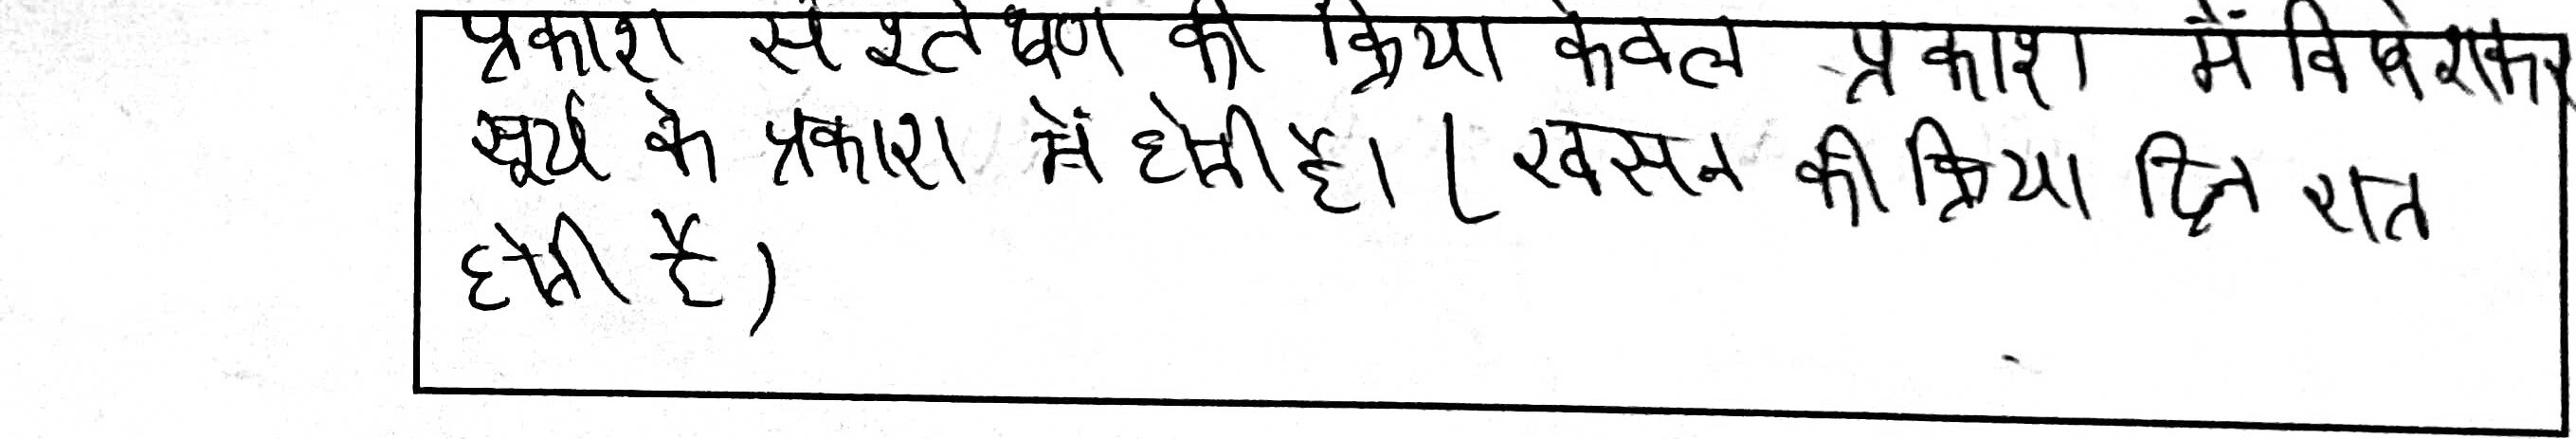 प्रकाश संश्लेषण की क्रिया केवल प्रकाश में विषेशकर
सूर्य के प्रकाश में होती है। (स्वसन की क्रिया दिन रात
होती है)